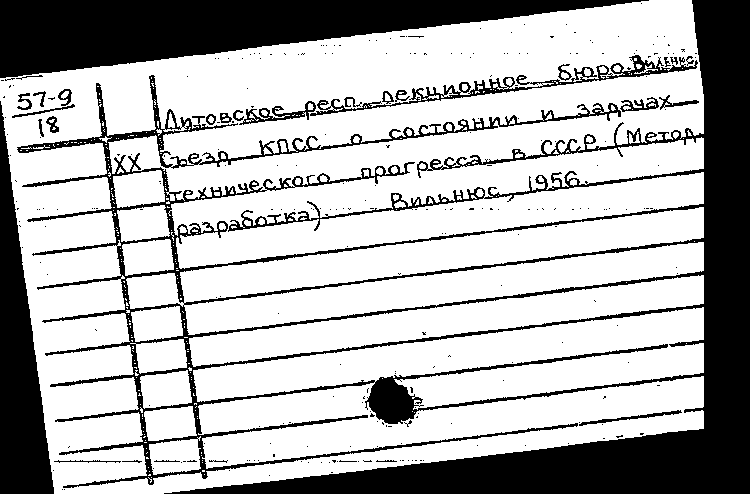 57-9
18
Литовское респ. лекционное бюро. Вильнюс.
XX Съезд КПСС о состоянии и задачах
технического прогресса в СССР (Метод.
разработка). Вильнюс, 1956.